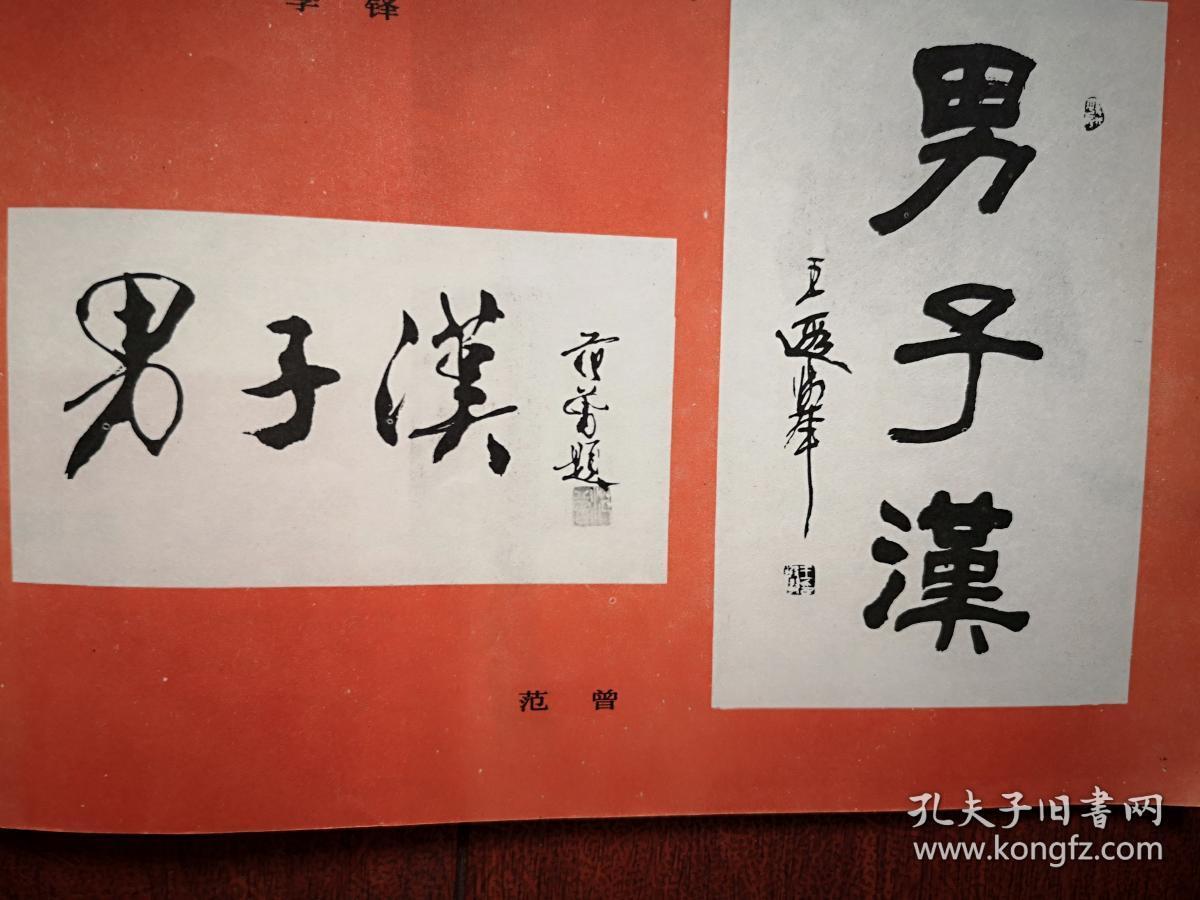 李铎
男子漢
范曾題
范曾
男子漢
王遐舉
孔夫子旧書网
www.kongfz.com